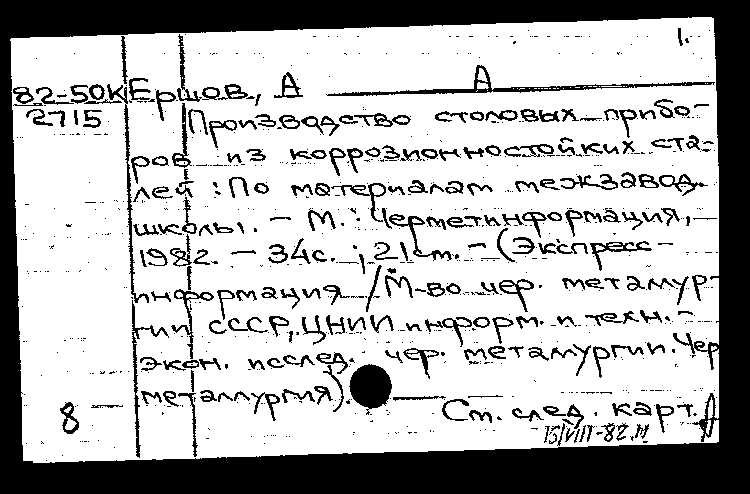 1.
82-50К Ершов, А А
2715 Производство столовых прибо-
ров из коррозионностойких ста-
лей : По материалам межзавод.
школы. – М. : Черметинформация,
1982. – 34с. ; 21см. – (Экспресс-
информация / М-во чер. металлур-
гии СССР, ЦНИИ информ. и техн.-
экон. исслед. чер. металлургии. Чер
металлургия).
8 См. след. карт.
15/VIII-82.М